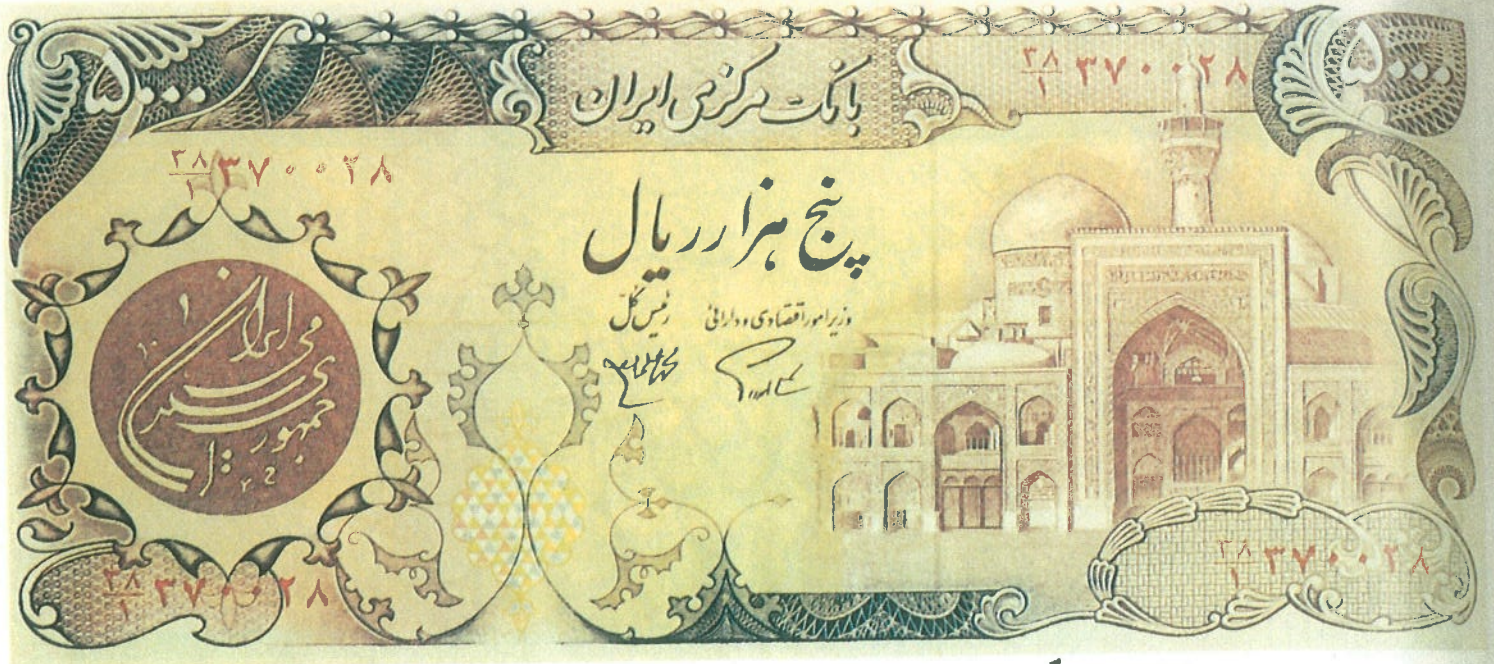 بانک مرکزی ایران
۳۸/۱ ۳۷۰۰۲۸
۵۰۰۰
۵۰۰۰
۳۸/۱ ۳۷۰۰۲۸
پنج هزار ریال
وزیر امور اقتصادی و دارائی
رئیس کل
جمهوری اسلامی ایران
۳۸/۱ ۳۷۰۰۲۸
۳۸/۱ ۳۷۰۰۲۸